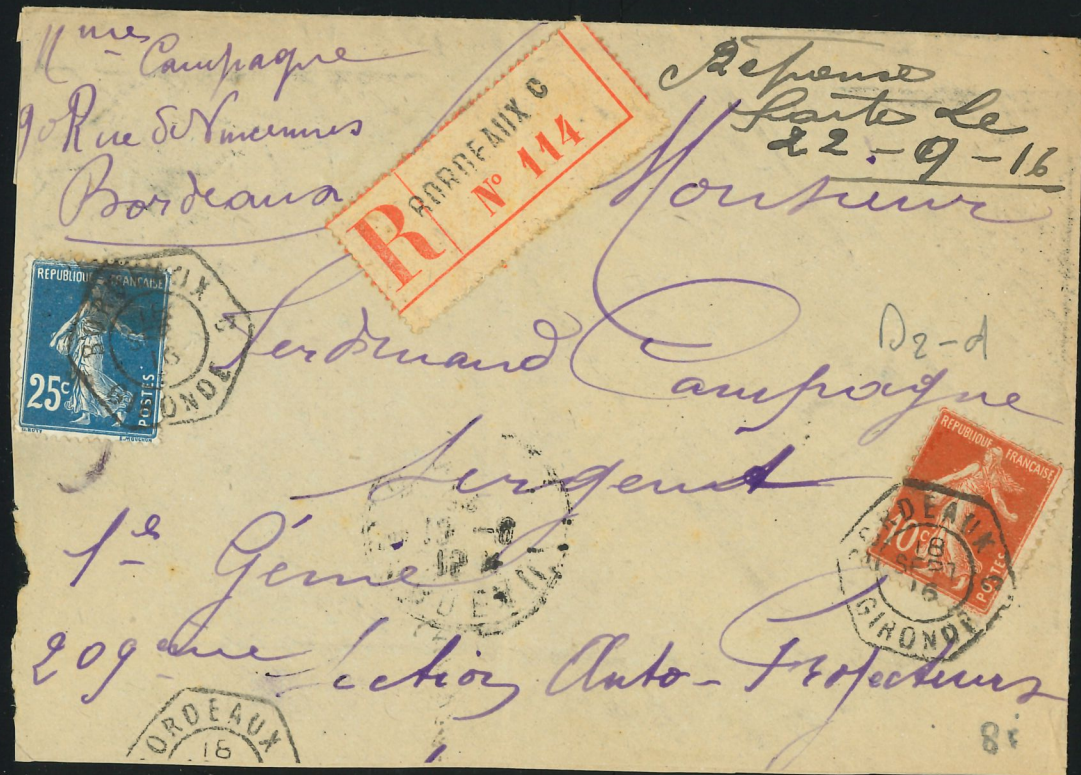 Mmes Campagne
90 Rue de Vincennes
Bordeaux
R BORDEAUX C
N° 114
Réponse
faite Le
22-9-16
Monsieur
Ferdinand Campagne
Sergent
1er Génie
209ème Section Auto-Projecteurs
REPUBLIQUE FRANÇAISE
25c
POSTES
BORDEAUX
GIRONDE
D2-d
REPUBLIQUE FRANÇAISE
10c
POSTES
BORDEAUX S
18
SEPT
16
GIRONDE
BORDEAUX
18
8i